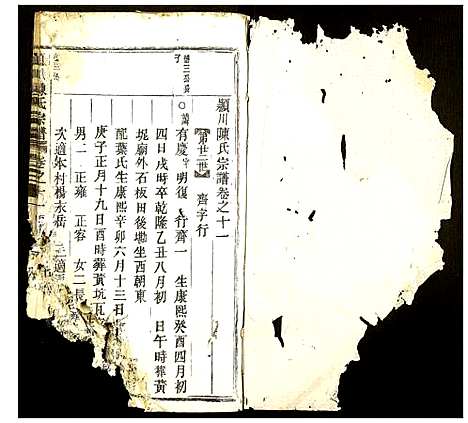 潁川陳氏宗譜卷之十一
第廿二世 齊字行
有慶 明復 行齊一 生康熙癸酉四月初
四日戌時卒乾隆乙丑八月初 日午時葬黃
坭廟外石板田後塝坐西朝東
配葉氏生康熙辛卯六月十三日
庚子正月十九日酉時葬黃坑瓦
男二 正雍 正容 女二長
次適本村楊永岳
川陳氏宗譜 卷之十一